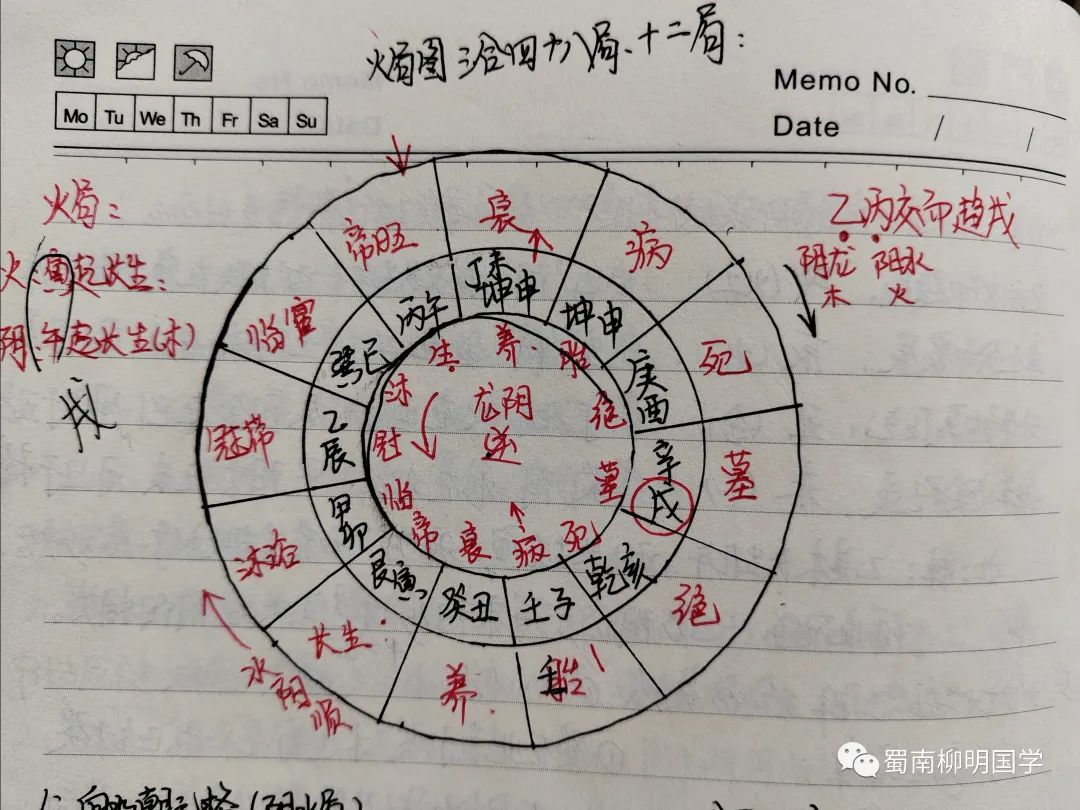 火局图三合四十八局、十二局：
Memo No.
Mo Tu We Th Fr Sa Su
Date / /
火局：
乙丙交而趋戌
阴龙 阳水
木 火
火:寅起长生:
阴:午起长生(木)
戌
帝旺
衰
病
死
墓
绝
胎
养
长生
沐浴
冠带
临官
丙午
丁未
坤申
坤申
庚酉
辛戌
乾亥
壬子
癸丑
艮寅
甲卯
乙辰
巽巳
生
养
胎
绝
墓
死
病
衰
帝
临
冠
沐
龙阴
逆
水阳顺
蜀南柳明国学